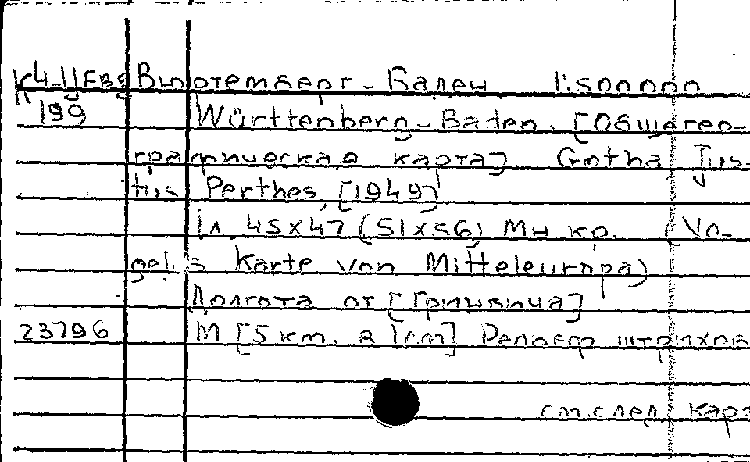 К4-II Евg Вюртемберг - Баден 1:500000
199 Württenberg-Baden. [Общегео-
графическая карта] Gotha Jus-
tus Perthes, [1949]
1л. 45x47 (51x56) Мн кр. (Vo-
gel's Karte von Mitteleuropa)
Долгота от [Гринвича]
23796 М [5 км. в 1 cm] Рельеф штрихов
см. след карт